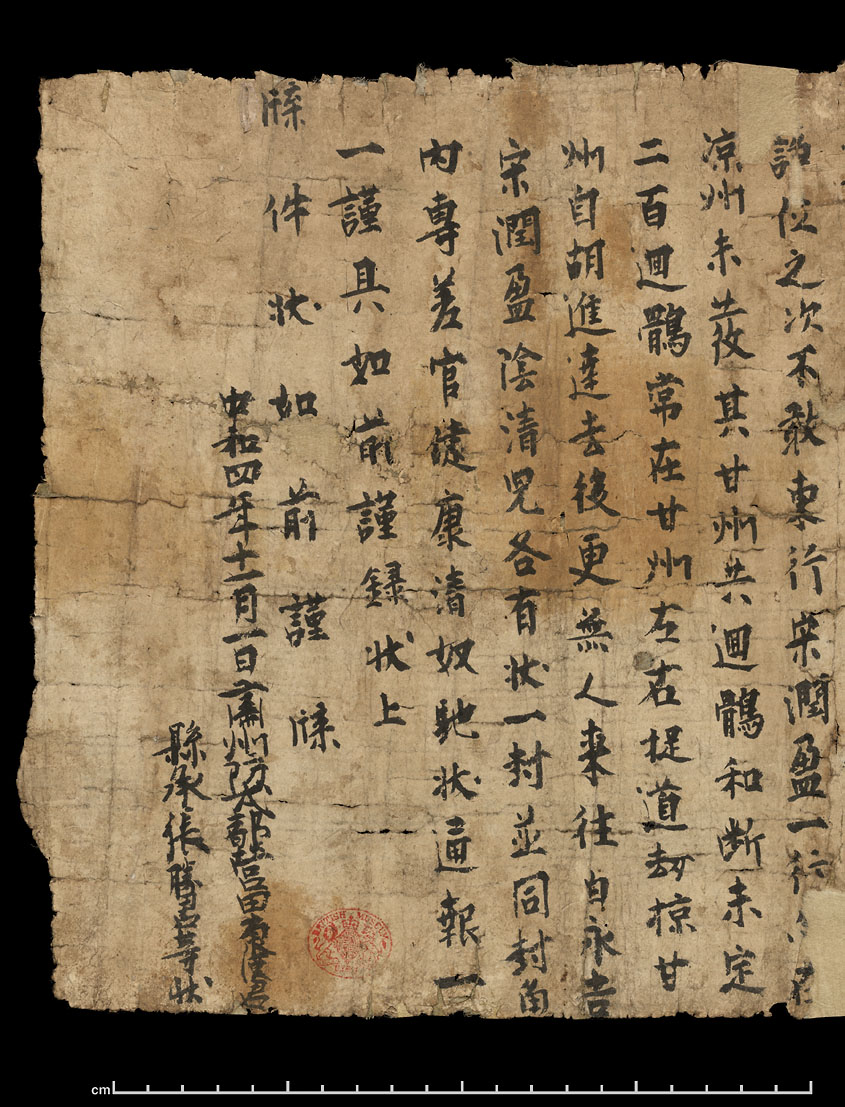 位之次不敢東行宋潤盈一行
凉州未發其甘州共迴鶻和斷未定
二百迴鶻常在甘州左右捉道劫掠甘
州自胡進達去後更無人來往白永吉
宋潤盈陰清兒各有狀一封並同封角
內專差官健康清奴馳狀通報一
一謹具如前謹録狀上
牒件狀如前謹牒
中和四年十一月一日肅州防戍都營田索漢君
縣丞張勝君等狀
BRITISH MUSEUM
cm